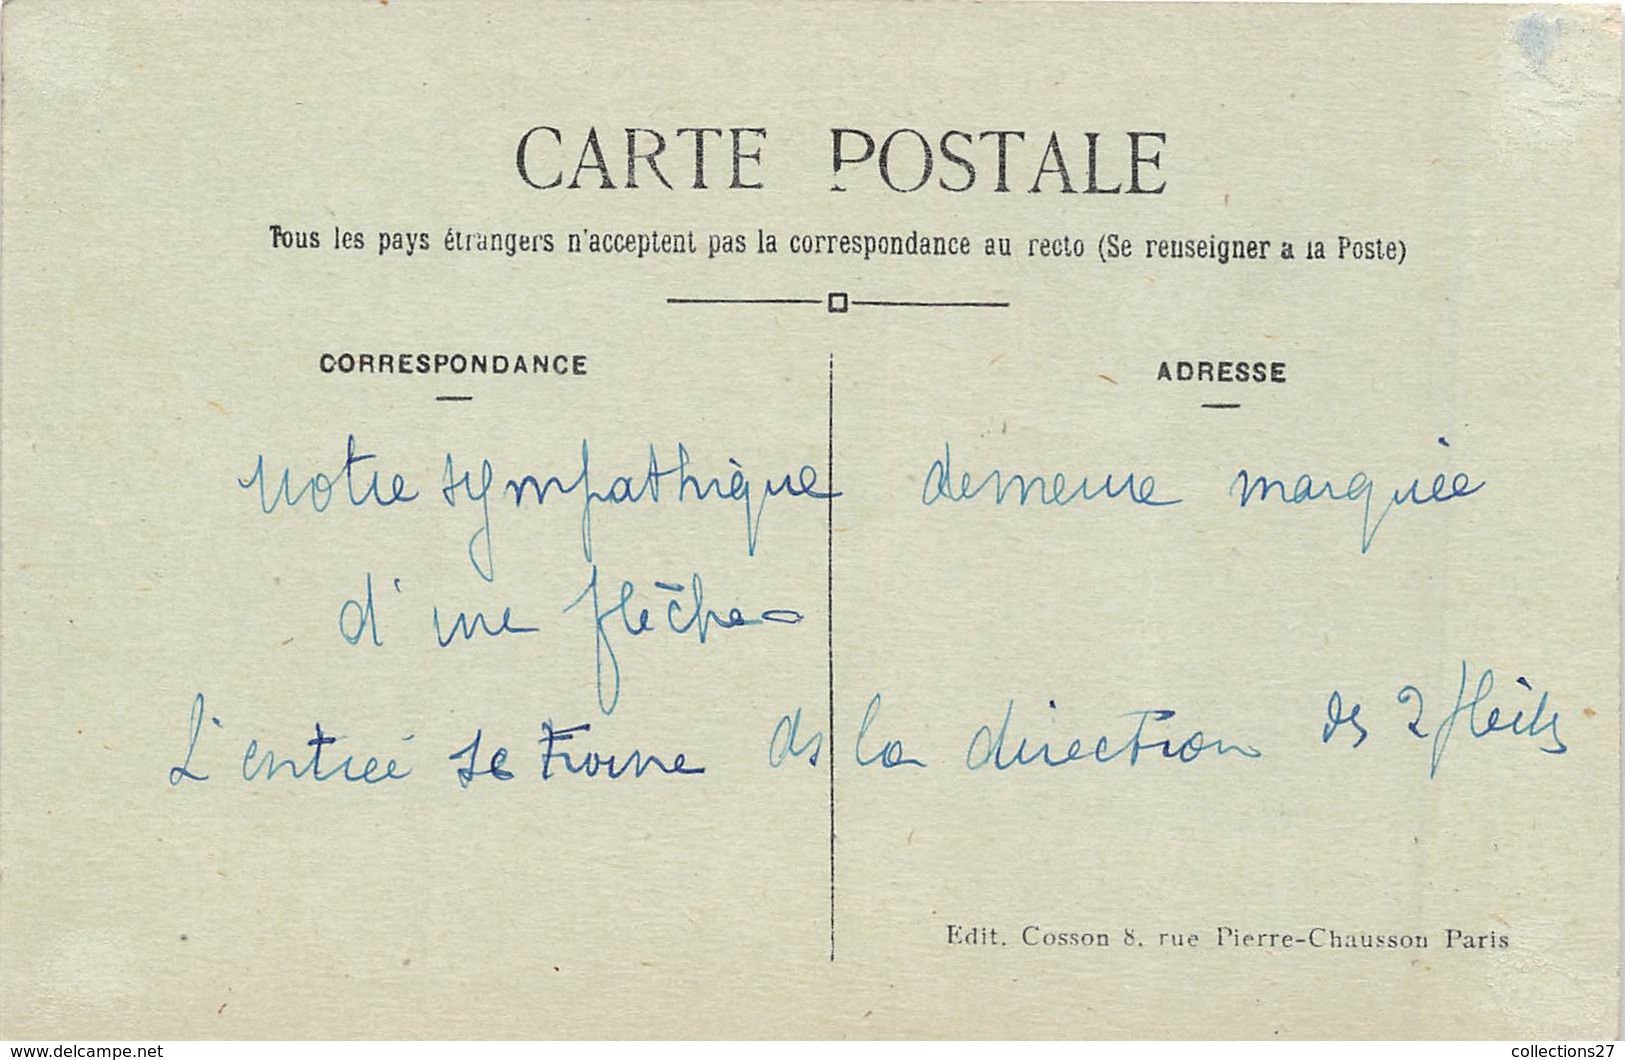 CARTE POSTALE
Tous les pays étrangers n'acceptent pas la correspondance au recto (Se renseigner a la Poste)
CORRESPONDANCE
ADRESSE
Notre sympathique demeure marquée
d'une flèche
L'entrée se trouve ds la direction des 2 flèches
Edit. Cosson 8, rue Pierre-Chausson Paris
www.delcampe.net
collections27